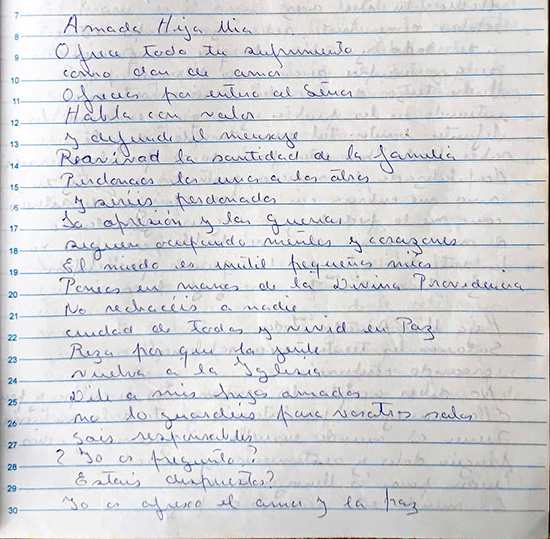 7
Amada Hija Mia
8
Ofrece todo tu sufrimiento
9
como don de amor
10
Ofreceos por entero al Señor
11
Habla con valor
12
y defiende el mensaje
13
Reavivad la santidad de la familia
14
Perdonaos los unos a los otros
15
y seréis perdonados
16
La opresión y las guerras
17
siguen ocupando mentes y corazones
18
El miedo es inútil pequeños mios
19
Poneos en manos de la Divina Providencia
20
No rechacéis a nadie
21
cuidad de todos y vivid en Paz
22
Reza por que la gente
23
vuelva a la Iglesia
24
Dile a mis hijos amados
25
no lo guardéis para vosotros solos
26
Sois responsables
27
? Yo os pregunto?
28
Estais dispuestos?
29
Yo os ofrezco el amor y la paz
30